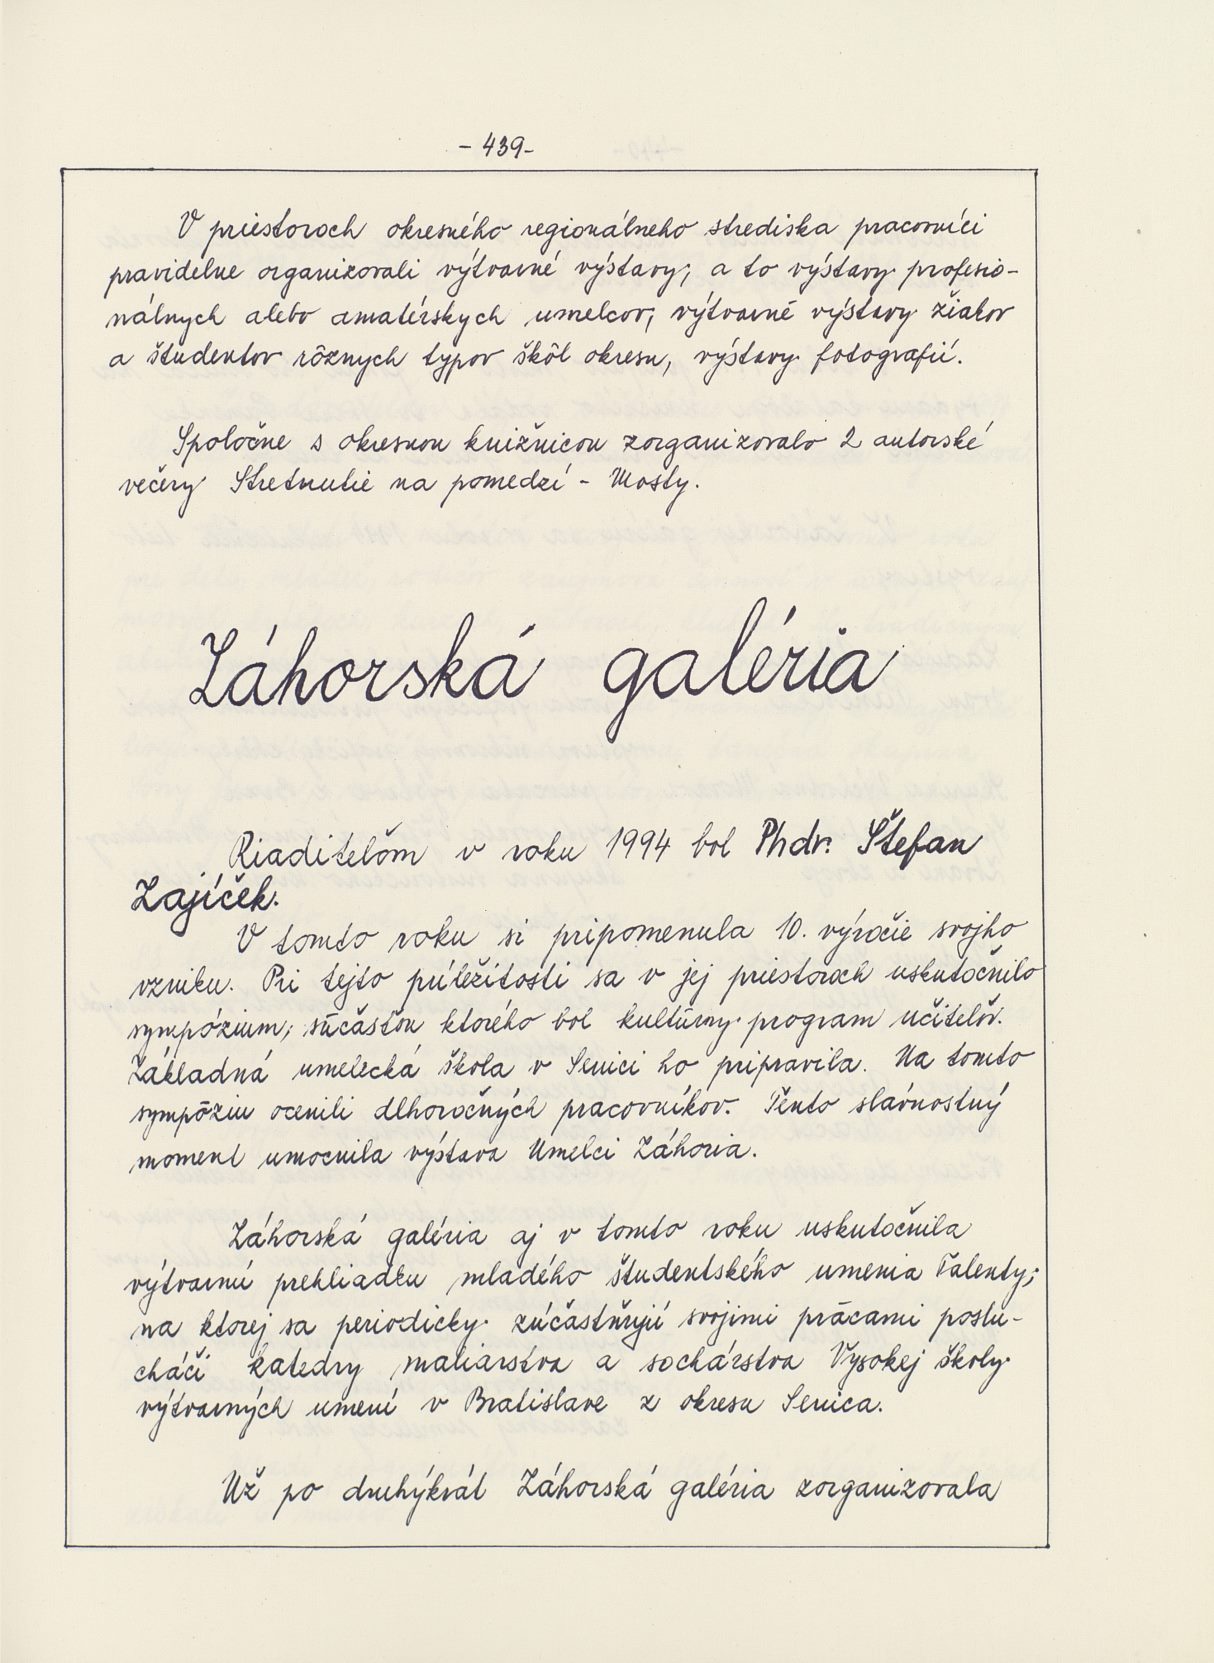 - 439 -
V priestoroch okresného regionálneho strediska pracovníci
pravidelne organizovali výtvarné výstavy, a to výstavy profesio-
nálnych alebo amatérskych umelcov, výtvarné výstavy žiakov
a študentov rôznych typov škôl okresu, výstavy fotografií.
Spoločne s okresnou knižnicou zorganizovalo 2 autorské
večery Stretnutie na pomedzí - Mosty.
Záhorská galéria
Riaditeľom v roku 1994 bol Phdr. Štefan
Zajíček.
V tomto roku si pripomenula 10. výročie svojho
vzniku. Pri tejto príležitosti sa v jej priestoroch uskutočnilo
sympózium, súčasťou ktorého bol kultúrny program učiteľov.
Základná umelecká škola v Senici ho pripravila. Na tomto
sympóziu ocenili dlhoročných pracovníkov. Tento slávnostný
moment umocnila výstava Umelci Záhoria.
Záhorská galéria aj v tomto roku uskutočnila
výtvarnú prehliadku mladého študentského umenia Talenty,
na ktorej sa periodicky zúčastňujú svojimi prácami poslu-
cháči katedry maliarstva a sochárstva Vysokej školy
výtvarných umení v Bratislave z okresu Senica.
Už po druhýkrát Záhorská galéria zorganizovala